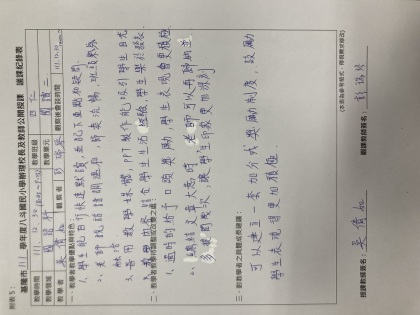 附表5：
基隆市 111 學年度八斗國民小學辦理校長及教師公開授課 議課紀錄表
教學時間 111.12.30 教學班級 四仁
教學領域 國語科 教學單元 閱讀二
教學者 吳倩如 觀察者 彭瑞琴 觀察後會談時間 111.12.30
一、教學者教學優點與特色：
1. 學生能自行快速默讀，並記下重點和疑問。
2. 老師說話語調溫和，節奏流暢，班級氣氛
融洽。
3. 善用教學媒體，PPT製作能吸引學生目光
4. 教學內容結合學生生活經驗，學生樂於發表。
二、教學者教學待調整或改變之處：
1. 適時的給予口頭獎勵，學生表現會更積極
2. 總結文章大意時，老師可以再歸納並
多 幾次，讓學生印象更加深刻
三、對教學者之具體成長建議：
可以建立一套加分或獎勵制度，鼓勵
學生表現得更加積極。
(本表為參考格式，得視需求修改)
授課教師簽名：吳倩如 觀課教師簽名：彭瑞琴